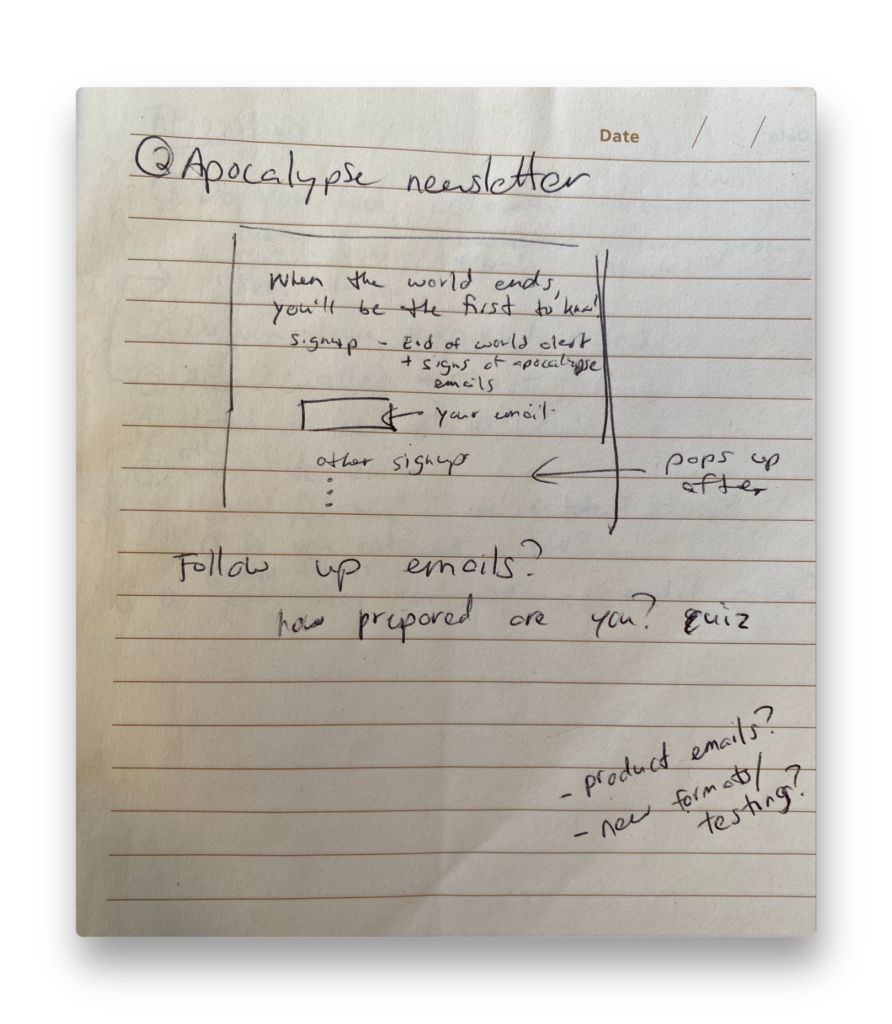 Date / /
② Apocalypse newsletter
When the world ends,
you'll be the first to know
signup - End of world alert
+ signs of apocalypse
emails
your email.
other signups
pops up
after
Follow up emails?
how prepared are you? quiz
- product emails?
- new formats/
testing?